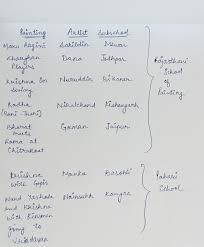 Painting Artist Subschool
Maru Ragini Sahibdin Mewar
Chaughan Players Dana Jodhpur
Krishna on Swing Nuruddin Bikaner
Radha (Bani-Thani) Nihalchand Kishangarh
Bharat meets Rama at Chitrakoot Guman Jaipur
Rajasthani School of Painting
Krishna with Gopis Manku Basohli
Nand Yashoda and Krishna with Kinsmen going to Vrindavan Nainsukh Kangra
Pahari School